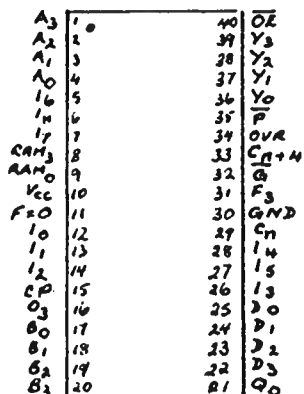 A3 1 40 OE
A2 2 39 Y3
A1 3 38 Y2
A0 4 37 Y1
I6 5 36 Y0
6 35 P
I7 7 34 OVR
RAM3 8 33 Cn+4
RAM0 9 32 G
Vcc 10 31 F3
F=0 11 30 GND
I0 12 29 Cn
I1 13 28 I4
I2 14 27 I5
CP 15 26 I3
Q3 16 25 D0
B0 17 24 D1
B1 18 23 D2
B2 19 22 D3
B3 20 21 Q0